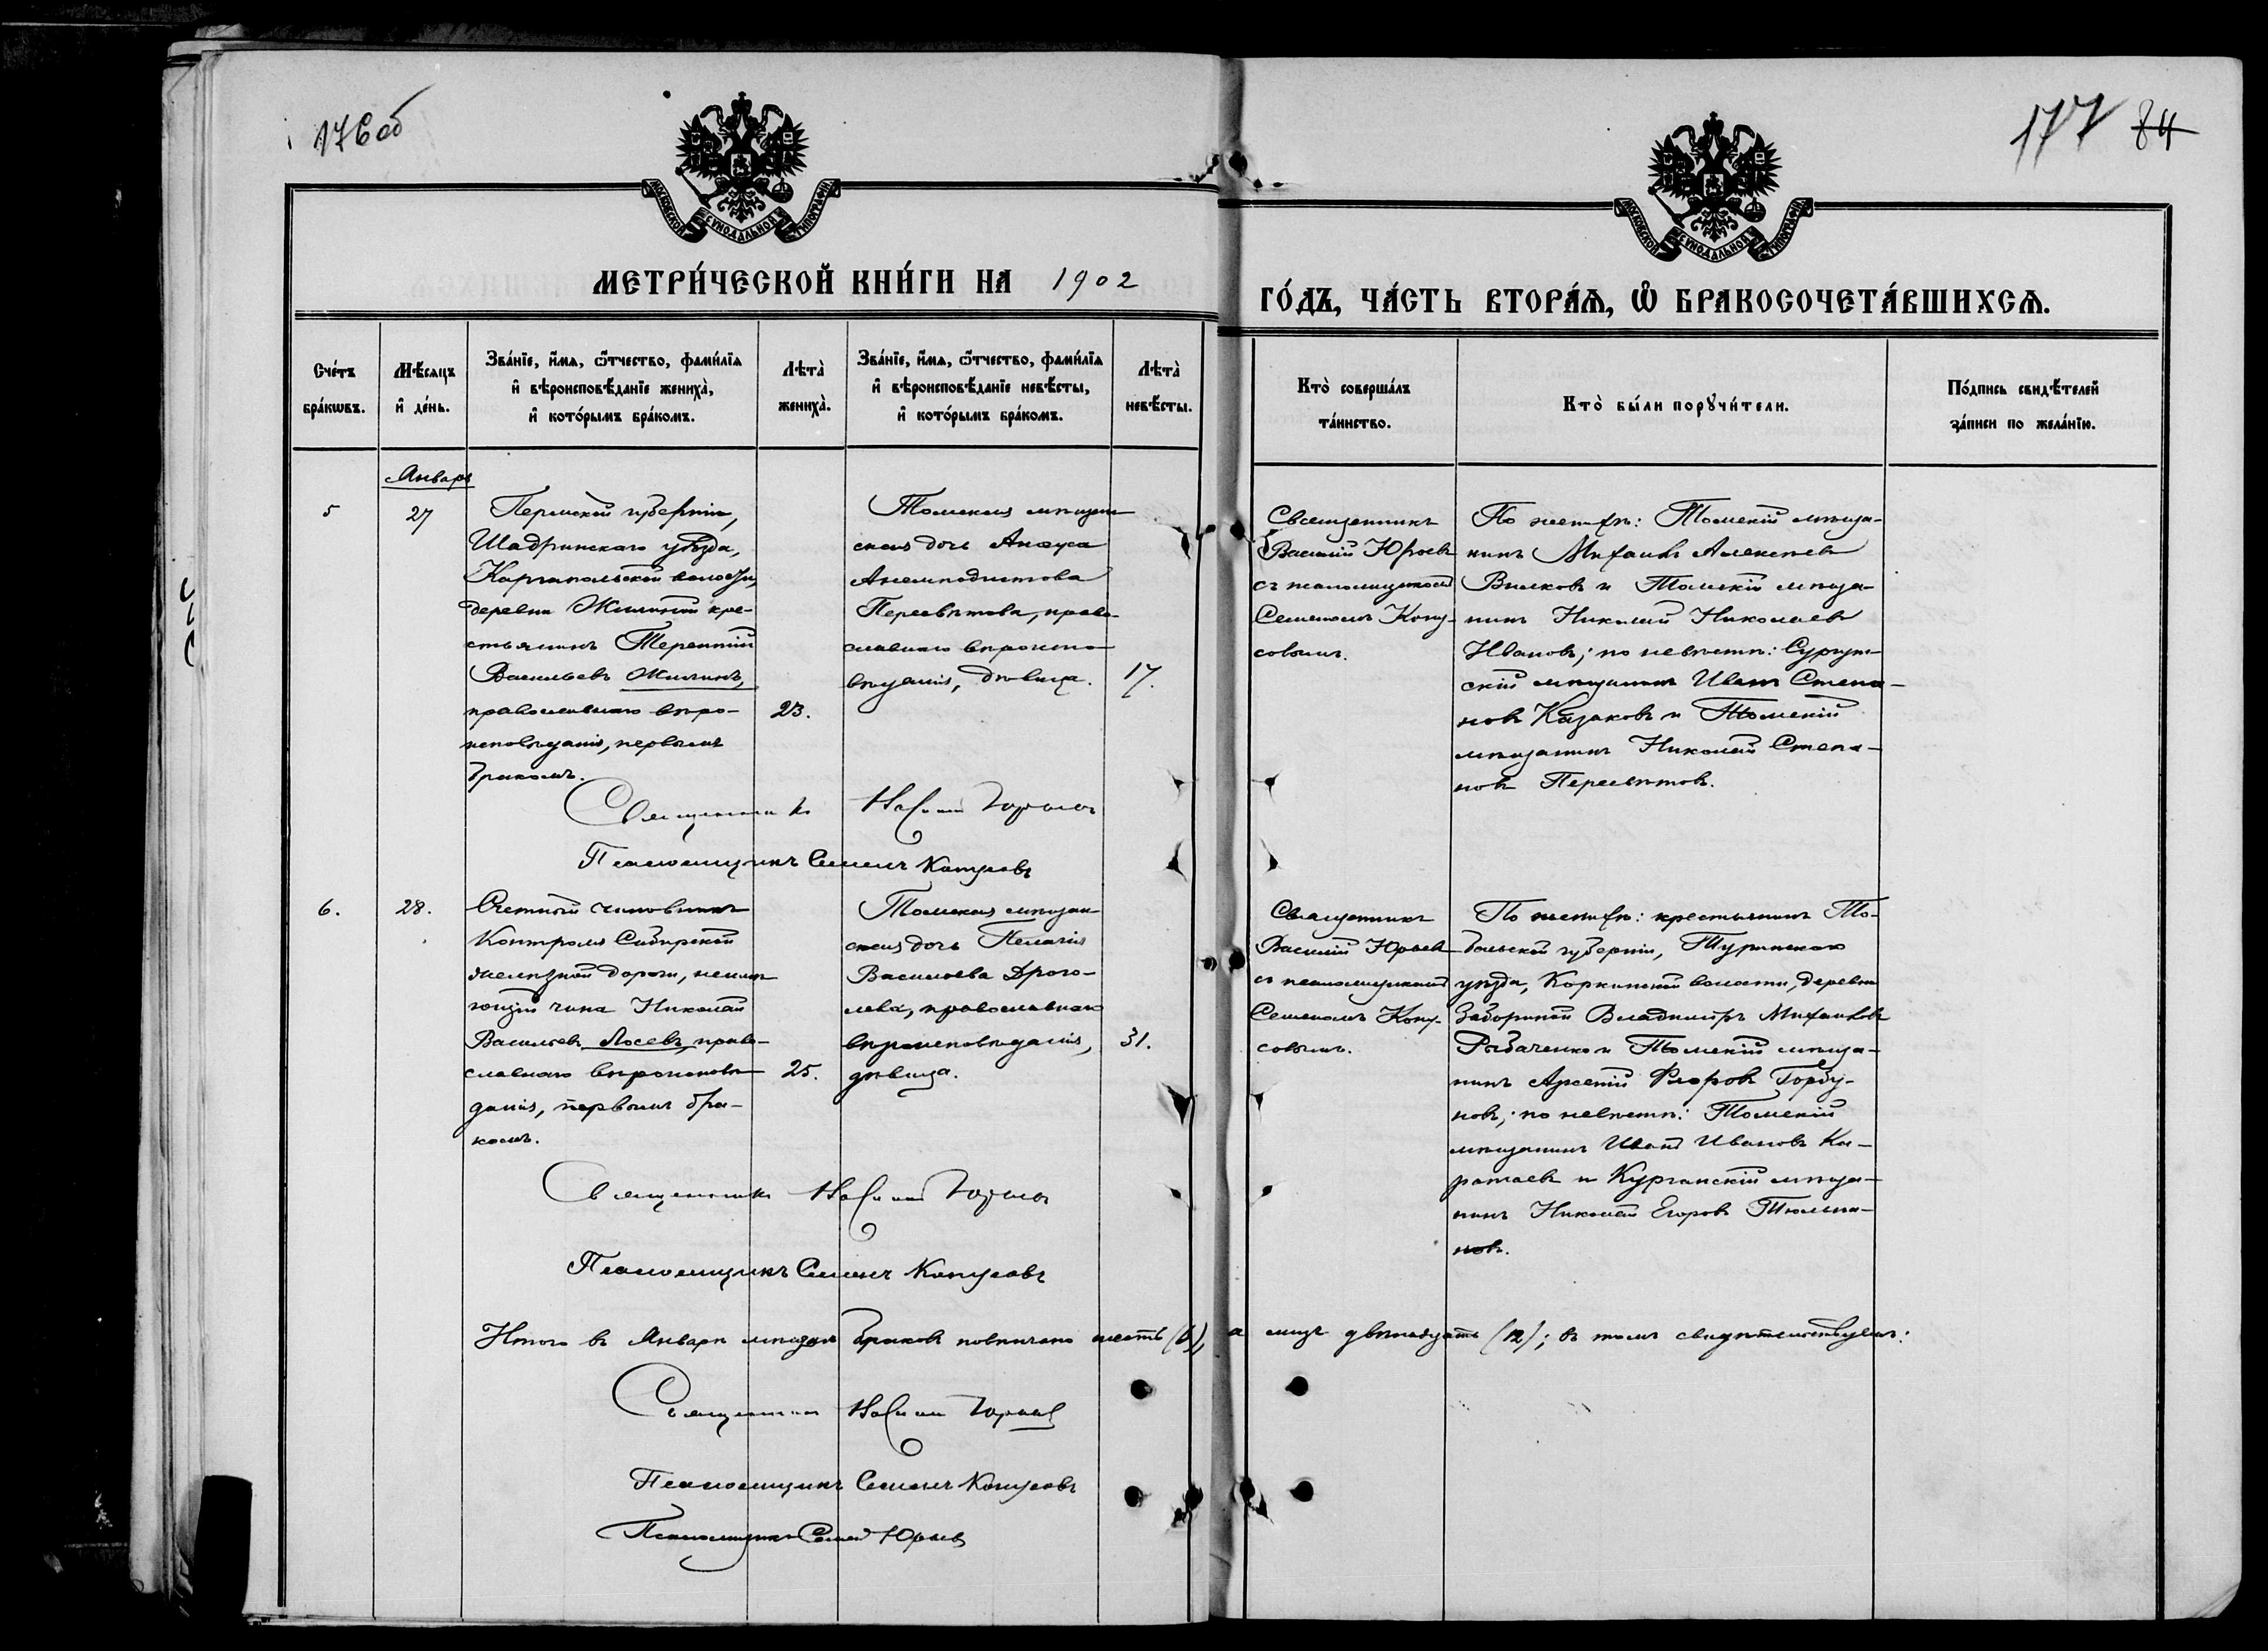 176 об
177 84
МОСКОВСКОЙ СУНОДАЛЬНОЙ ТИПОГРАФІИ
МОСКОВСКОЙ СУНОДАЛЬНОЙ ТИПОГРАФІИ
МЕТРИ́ЧЕСКОЙ КНИ́ГИ НА 1902
ГО́ДЪ, ЧА́СТЬ ВТОРА́Ѧ, Ѽ БРАКОСОЧЕТА́ВШИХСѦ.
Сче́тъ
бра́кѡвъ.
Мѣ́сяцъ
и҆ де́нь.
Зва́нїе, и҆́мѧ, ѻ҆́тчество, фами́лїѧ
и҆ вѣроисповѣ́данїе жениха̀,
и҆ кото́рымъ бра́комъ.
Лѣта̀
жениха̀.
Зва́нїе, и҆́мѧ, ѻ҆́тчество, фами́лїѧ
и҆ вѣроисповѣ́данїе невѣ́сты,
и҆ кото́рымъ бра́комъ.
Лѣта̀
невѣ́сты.
Кто̀ соверша́лъ
та́инство.
Кто̀ бы́ли порꙋчи́тели.
По́дпись свидѣ́телей
за́писи по жела́нїю.
Январь
5
27
Пермской губерніи,
Шадринскаго уѣзда,
Каргапольской волости,
деревни Жилиной кре-
стьянинъ Терентій
Васильевъ Жилинъ,
православнаго вѣро-
исповѣданія, первымъ
бракомъ.
23.
Томская мѣщан-
ская дочь
Анемподистова
Пересвѣтова, право-
славнаго вѣроиспо-
вѣданія, дѣвица.
17.
Священникъ
Василій Юрьевъ
съ псаломщикомъ
Семеномъ Копу-
совымъ.
По женихѣ: Томскій мѣща-
нинъ Михаилъ Алексѣевъ
Вилковъ и Томскій мѣща-
нинъ Николай Николаевъ
Ивановъ; по невѣстѣ: Сургут-
скій мѣщанинъ Иванъ Степа-
новъ Казаковъ и Томскій
мѣщанинъ Николай Степа-
новъ Пересвѣтовъ.
Священникъ Василій Юрьевъ
Псаломщикъ Семенъ Копусовъ
6.
28.
Счетный чиновникъ
Контроля Сибирской
желѣзной дороги, неимѣ-
ющій чина Николай
Васильевъ Лосевъ, право-
славнаго вѣроисповѣ-
данія, первымъ бра-
комъ.
25.
Томская мѣщан-
ская дочь Пелагія
Васильева Дрого-
лева, православнаго
вѣроисповѣданія,
дѣвица.
31.
Священникъ
Василій Юрьевъ
съ псаломщикомъ
Семеномъ Копу-
совымъ.
По женихѣ: крестьянинъ То-
больской губерніи, Туринскаго
уѣзда, Коркинской волости, деревни
Забориной Владиміръ Михайловъ
Рыбаченко и Томскій мѣща-
нинъ Арсеній Флоровъ Горбу-
новъ; по невѣстѣ: Томскій
мѣщанинъ Иванъ Ивановъ Ка-
ратаевъ и Курганскій мѣща-
нинъ Николай Егоровъ Тюльпа-
новъ.
Священникъ Василій Юрьевъ
Псаломщикъ Семенъ Копусовъ
Итого въ Январѣ мѣсяцѣ браковъ повѣнчано шесть (6), а лицъ двѣнадцать (12); въ томъ свидѣтельствуемъ:
Священникъ Василій Юрьевъ
Псаломщикъ Семенъ Копусовъ
Псаломщикъ Семенъ Юрьевъ